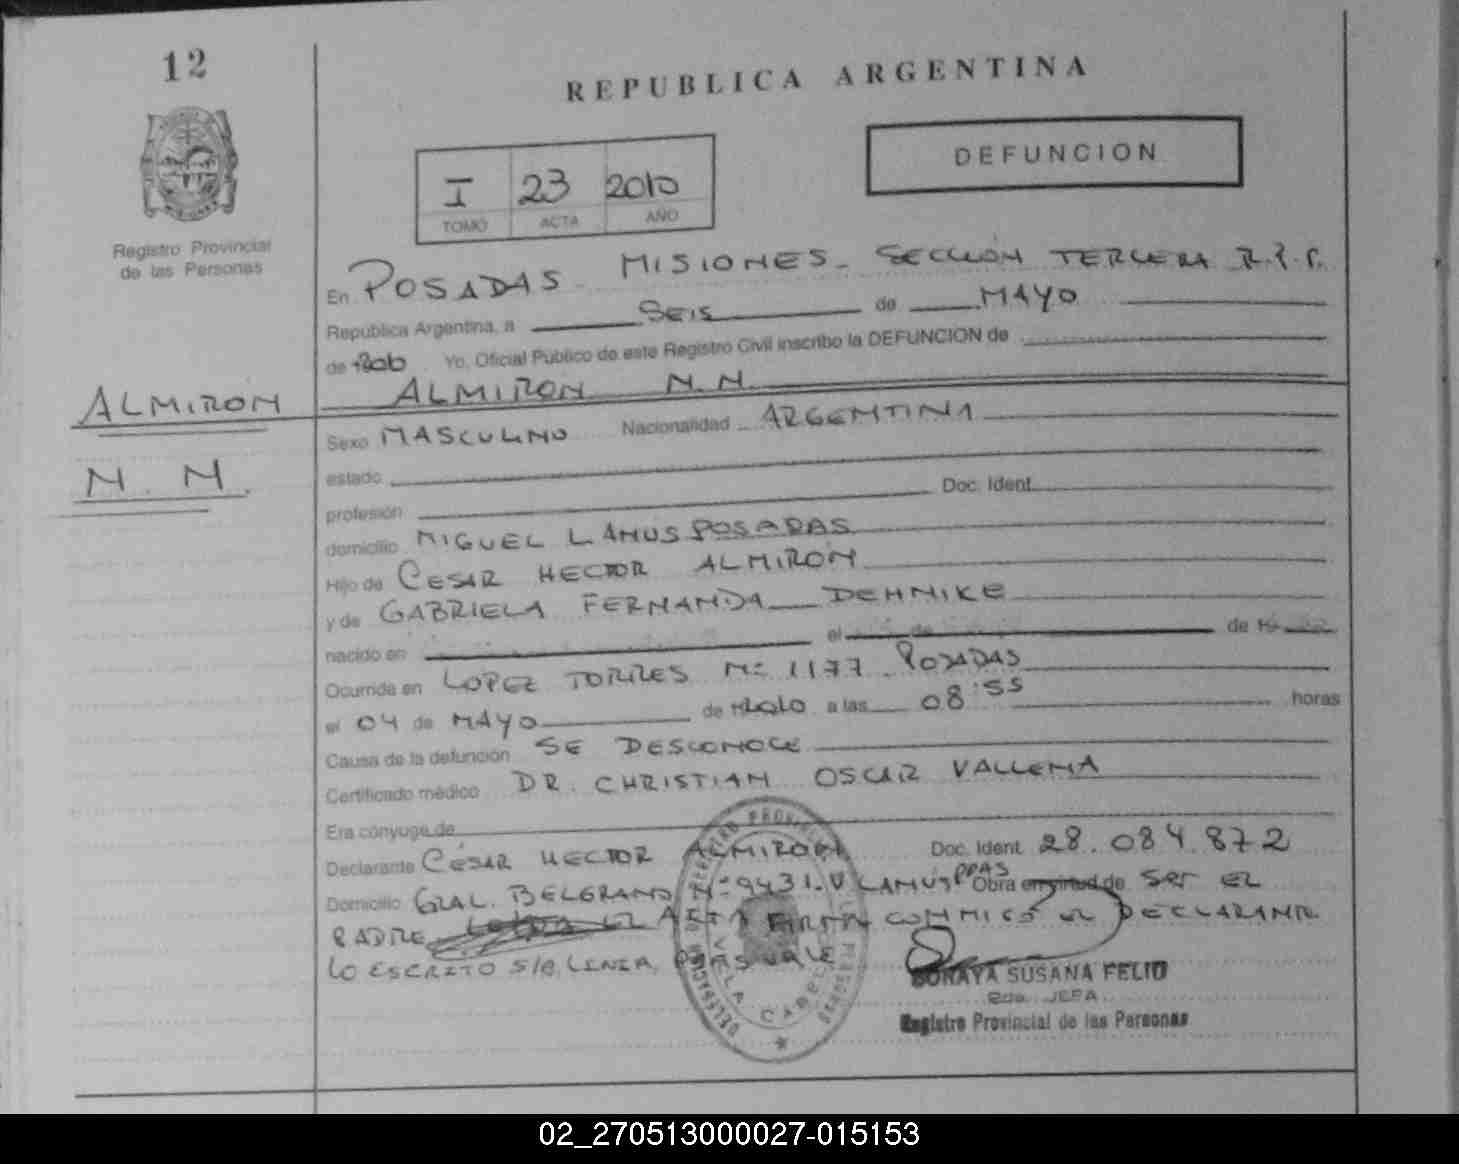 12
REPUBLICA ARGENTINA
DEFUNCION
I 23 2010
TOMO ACTA AÑO
Registro Provincial
de las Personas
En POSADAS MISIONES - SECCIÓN TERCERA R.P.P.
República Argentina, a SEIS de MAYO
de Yo, Oficial Público de este Registro Civil inscribo la DEFUNCION de
ALMIRON N. N.
ALMIRON
N. N.
Sexo MASCULINO Nacionalidad ARGENTINA
estado
profesión Doc. Ident.
domicilio MIGUEL LANUS POSADAS
Hijo de CESAR HECTOR ALMIRÓN
y de GABRIELA FERNANDA DEHNIKE
nacido en el de de 19
Ocurrida en LOPEZ TORRES Nº 1177 - POSADAS
el 04 de MAYO de 2010 a las 08:55 horas
Causa de la defunción SE DESCONOCE
Certificado médico DR. CHRISTIAN OSCAR VALLENA
Era cónyuge de
Declarante CÉSAR HECTOR ALMIRON Doc. Ident. 28.084.872
Domicilio GRAL. BELGRANO Nº 9431-V LANUS PDAS Obra en virtud de SER EL
PADRE FIRMA CONMIGO EL DECLARANTE
LO ESCRITO S/B LINEA PDAS VALE
SORAYA SUSANA FELIU
2da. JEFA
Registro Provincial de las Personas
02_270513000027-015153